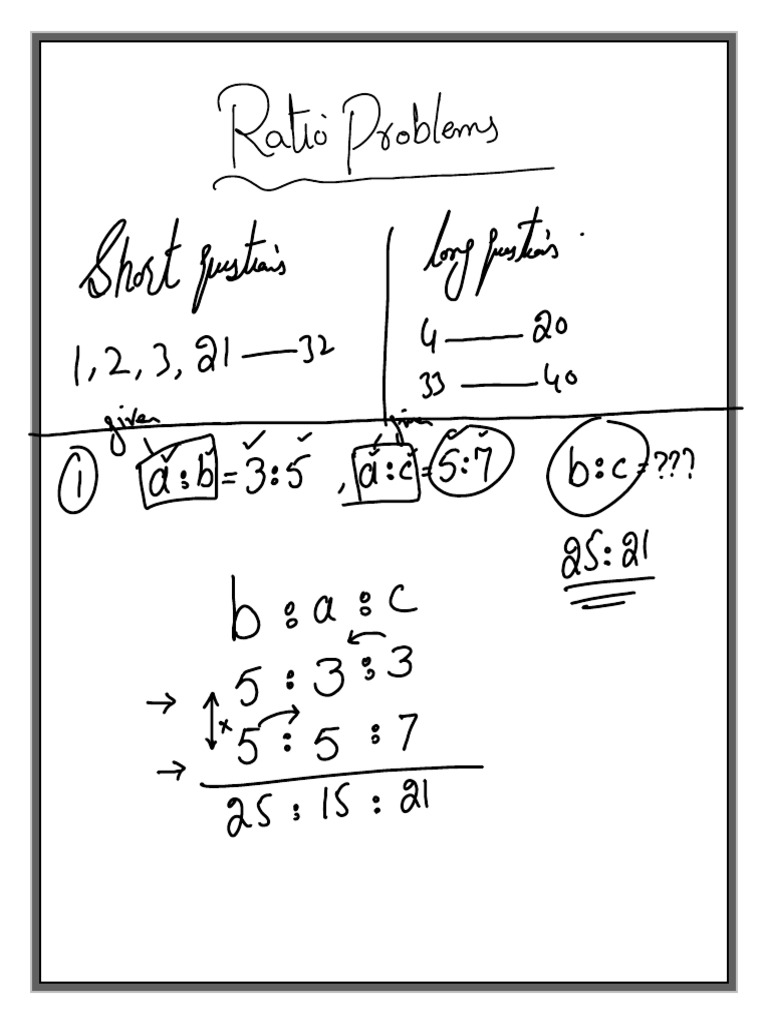 Ratio Problems
Short questions
long questions.
1, 2, 3, 21 — 32
4 — 20
33 — 40
given
given
① a:b = 3:5 , a:c = 5:7 b:c = ???
25:21
b : a : c
→ 5 : 3 : 3
×
→ 5 : 5 : 7
25 : 15 : 21